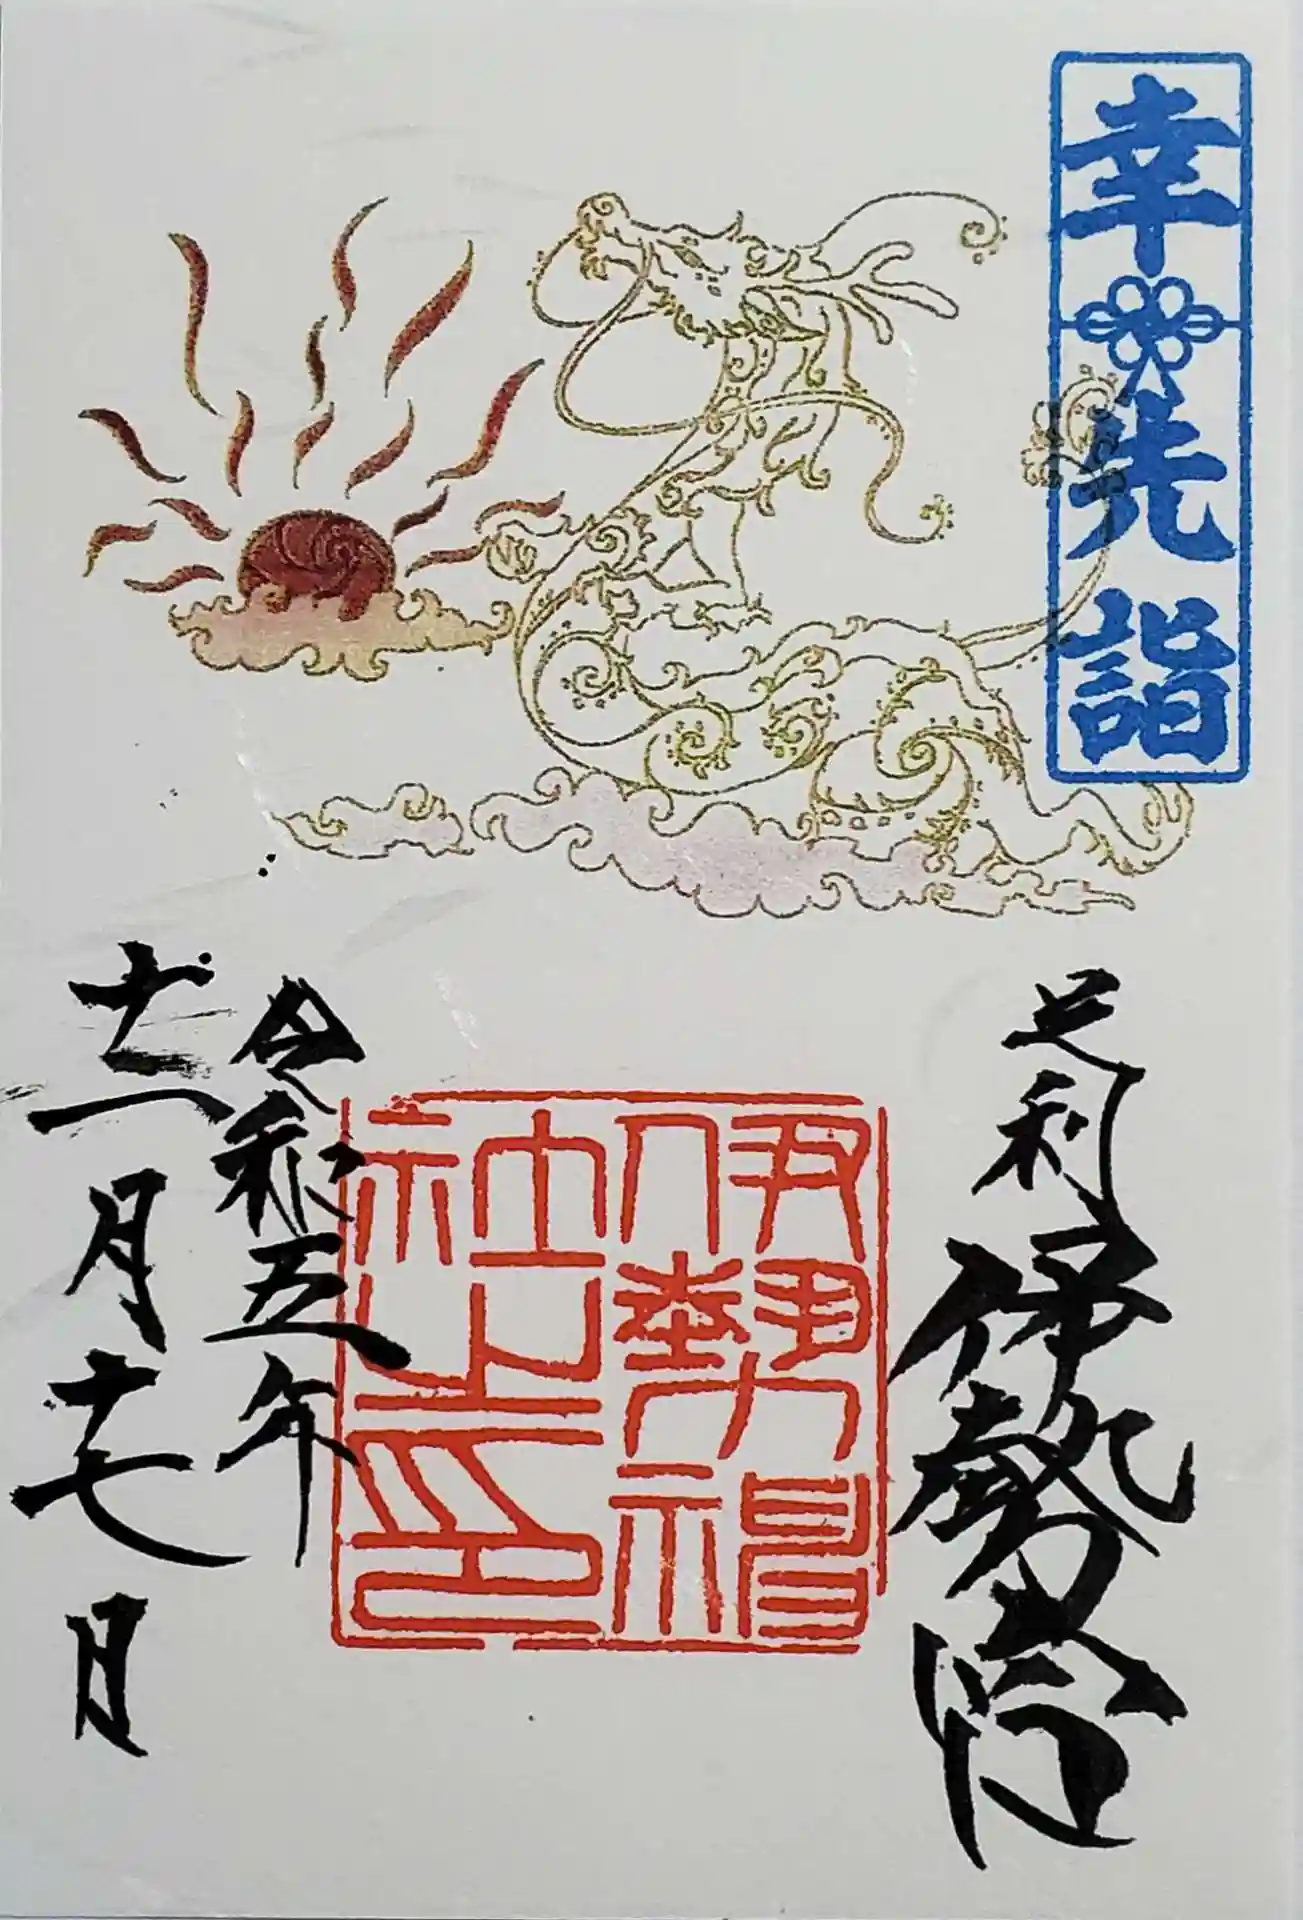 幸先詣
足利
伊勢宮
伊勢福神社之印
令和五年
十二月十七日